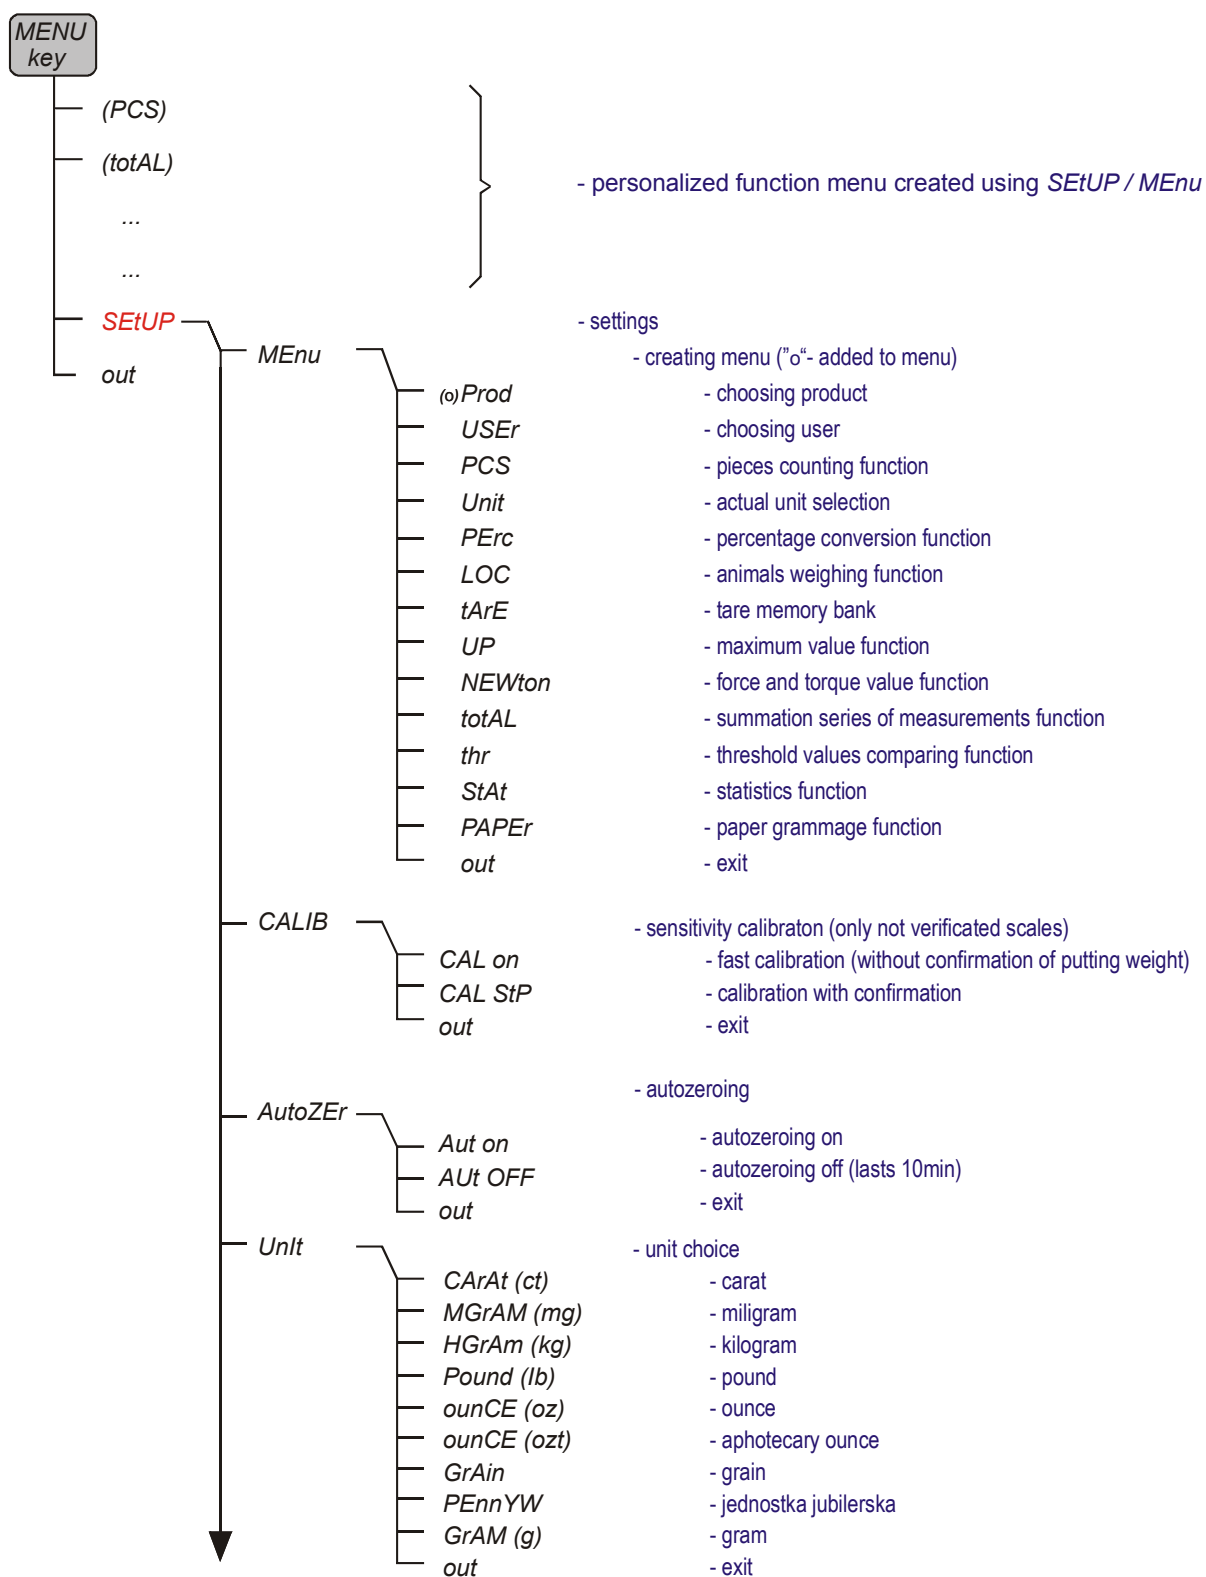 MENU
key
(PCS)
(totAL)
- personalized function menu created using SEtUP / MEnu
...
...
SEtUP - settings
MEnu - creating menu ("o"- added to menu)
out
(o) Prod - choosing product
USEr - choosing user
PCS - pieces counting function
Unit - actual unit selection
PErc - percentage conversion function
LOC - animals weighing function
tArE - tare memory bank
UP - maximum value function
NEWton - force and torque value function
totAL - summation series of measurements function
thr - threshold values comparing function
StAt - statistics function
PAPEr - paper grammage function
out - exit
CALIB - sensitivity calibraton (only not verificated scales)
CAL on - fast calibration (without confirmation of putting weight)
CAL StP - calibration with confirmation
out - exit
AutoZEr - autozeroing
Aut on - autozeroing on
AUt OFF - autozeroing off (lasts 10min)
out - exit
UnIt - unit choice
CArAt (ct) - carat
MGrAM (mg) - miligram
HGrAm (kg) - kilogram
Pound (lb) - pound
ounCE (oz) - ounce
ounCE (ozt) - aphotecary ounce
GrAin - grain
PEnnYW - jednostka jubilerska
GrAM (g) - gram
out - exit